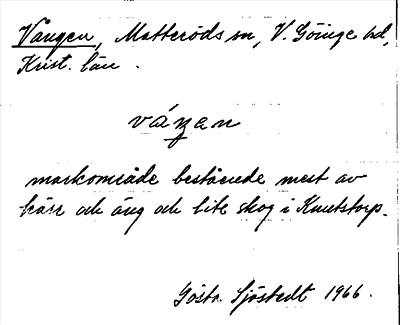 Vången, Matteröds sn, V. Göinge hd,
Krist. län.
váŋen
markområde bestående mest av
kärr och äng och lite skog i Knutstorp.
Gösta Sjöstedt 1966.